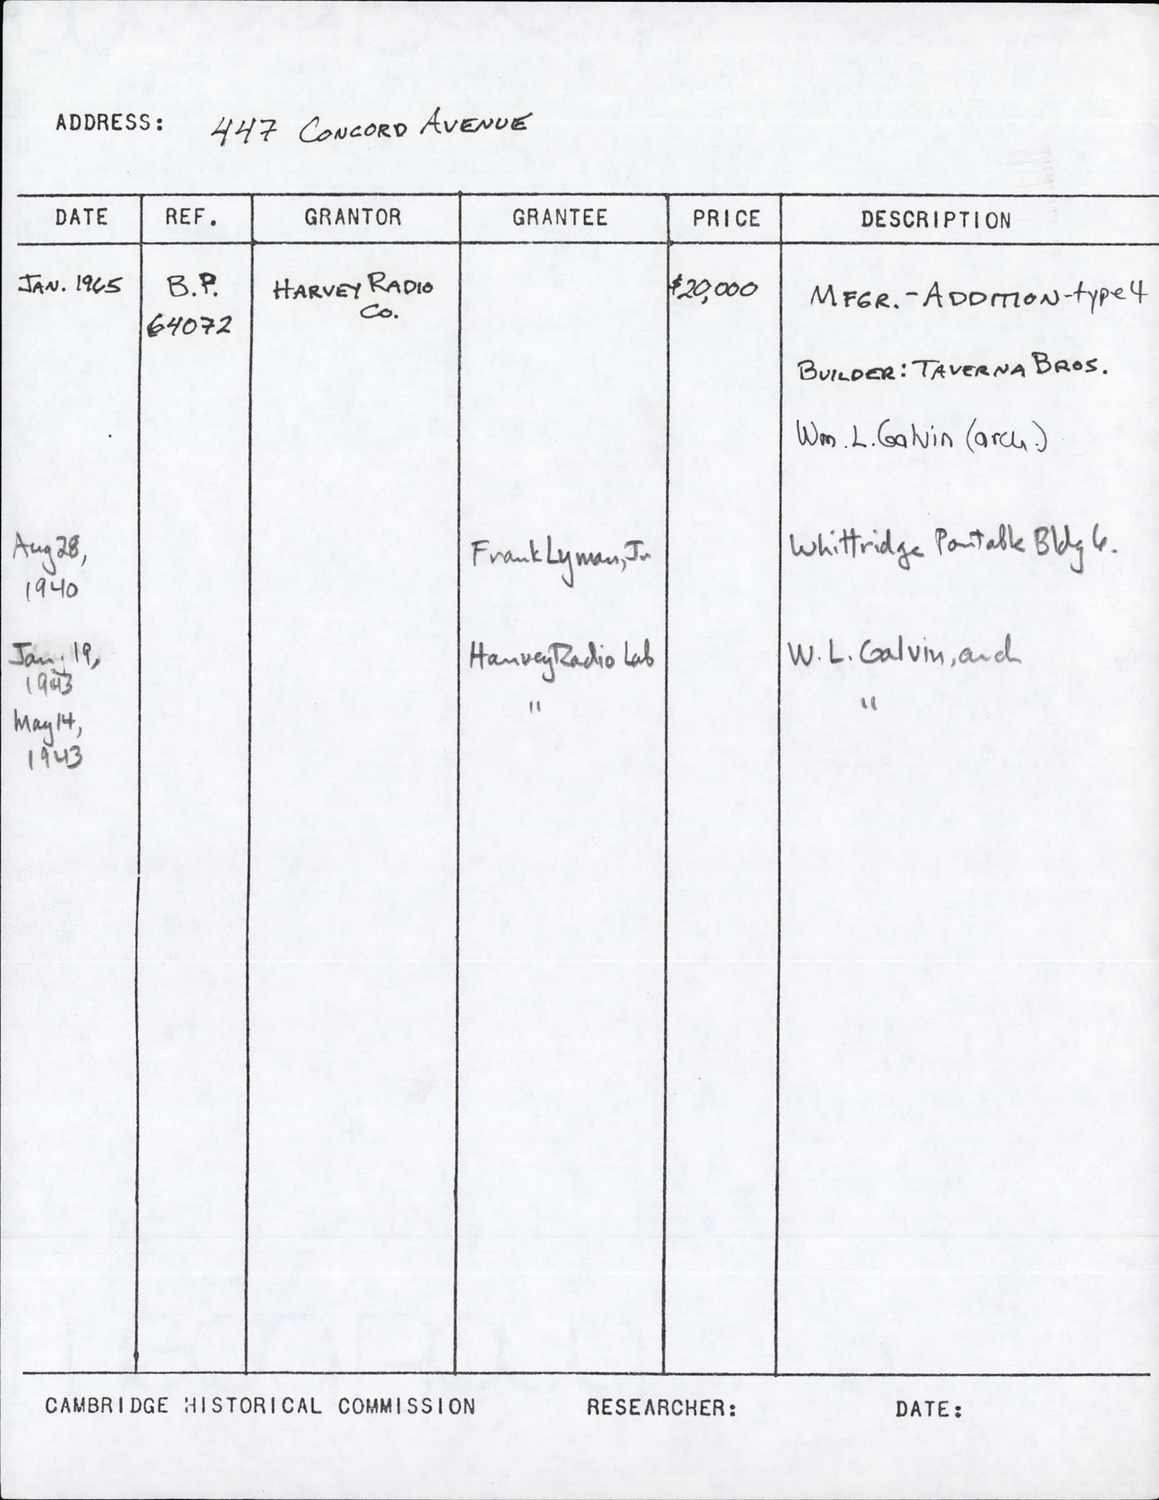 ADDRESS: 447 CONCORD AVENUE
DATE REF. GRANTOR GRANTEE PRICE DESCRIPTION
JAN. 1965 B.P. HARVEY RADIO $20,000 MFGR. - ADDITION - type 4
64072 Co.
BUILDER: TAVERNA BROS.
Wm. L. Galvin (arch.)
Aug 28, Frank Lyman, Jr Whittridge Portable Bldg Co.
1940
Jan 19, Harvey Radio Lab W. L. Galvin, arch
1943
May 14, " "
1943
CAMBRIDGE HISTORICAL COMMISSION RESEARCHER: DATE: